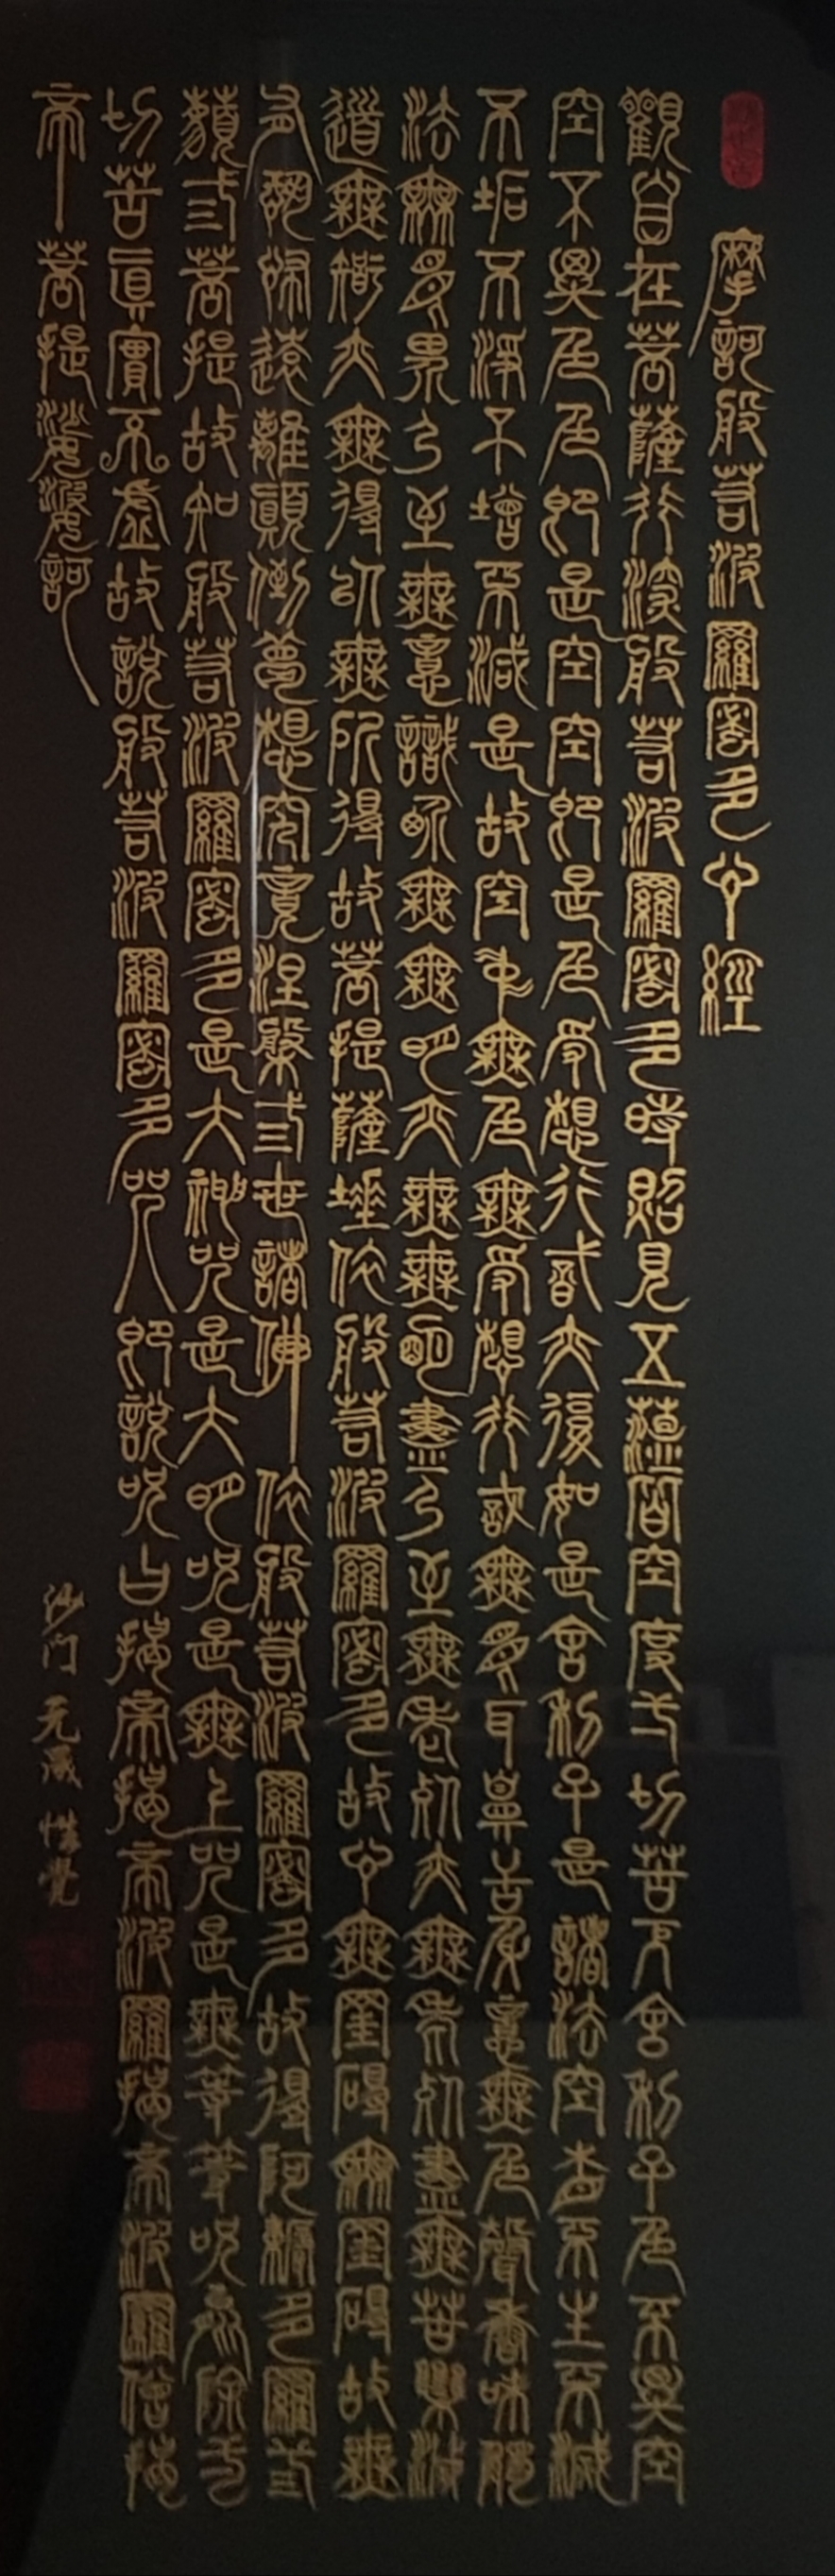 摩訶般若波羅蜜多心經
觀自在菩薩行深般若波羅蜜多時照見五蘊皆空度一切苦厄舍利子色不異空
空不異色色即是空空即是色受想行識亦復如是舍利子是諸法空相不生不滅
不垢不淨不增不減是故空中無色無受想行識無眼耳鼻舌身意無色聲香味觸
法無眼界乃至無意識界無無明亦無無明盡乃至無老死亦無老死盡無苦集滅
道無智亦無得以無所得故菩提薩埵依般若波羅蜜多故心無罣礙無罣礙故無
有恐怖遠離顛倒夢想究竟涅槃三世諸佛依般若波羅蜜多故得阿耨多羅三
藐三菩提故知般若波羅蜜多是大神咒是大明咒是無上咒是無等等咒能除一
切苦真實不虛故說般若波羅蜜多咒即說咒曰揭帝揭帝波羅揭帝波羅僧揭
帝菩提娑婆訶
沙门 性覺